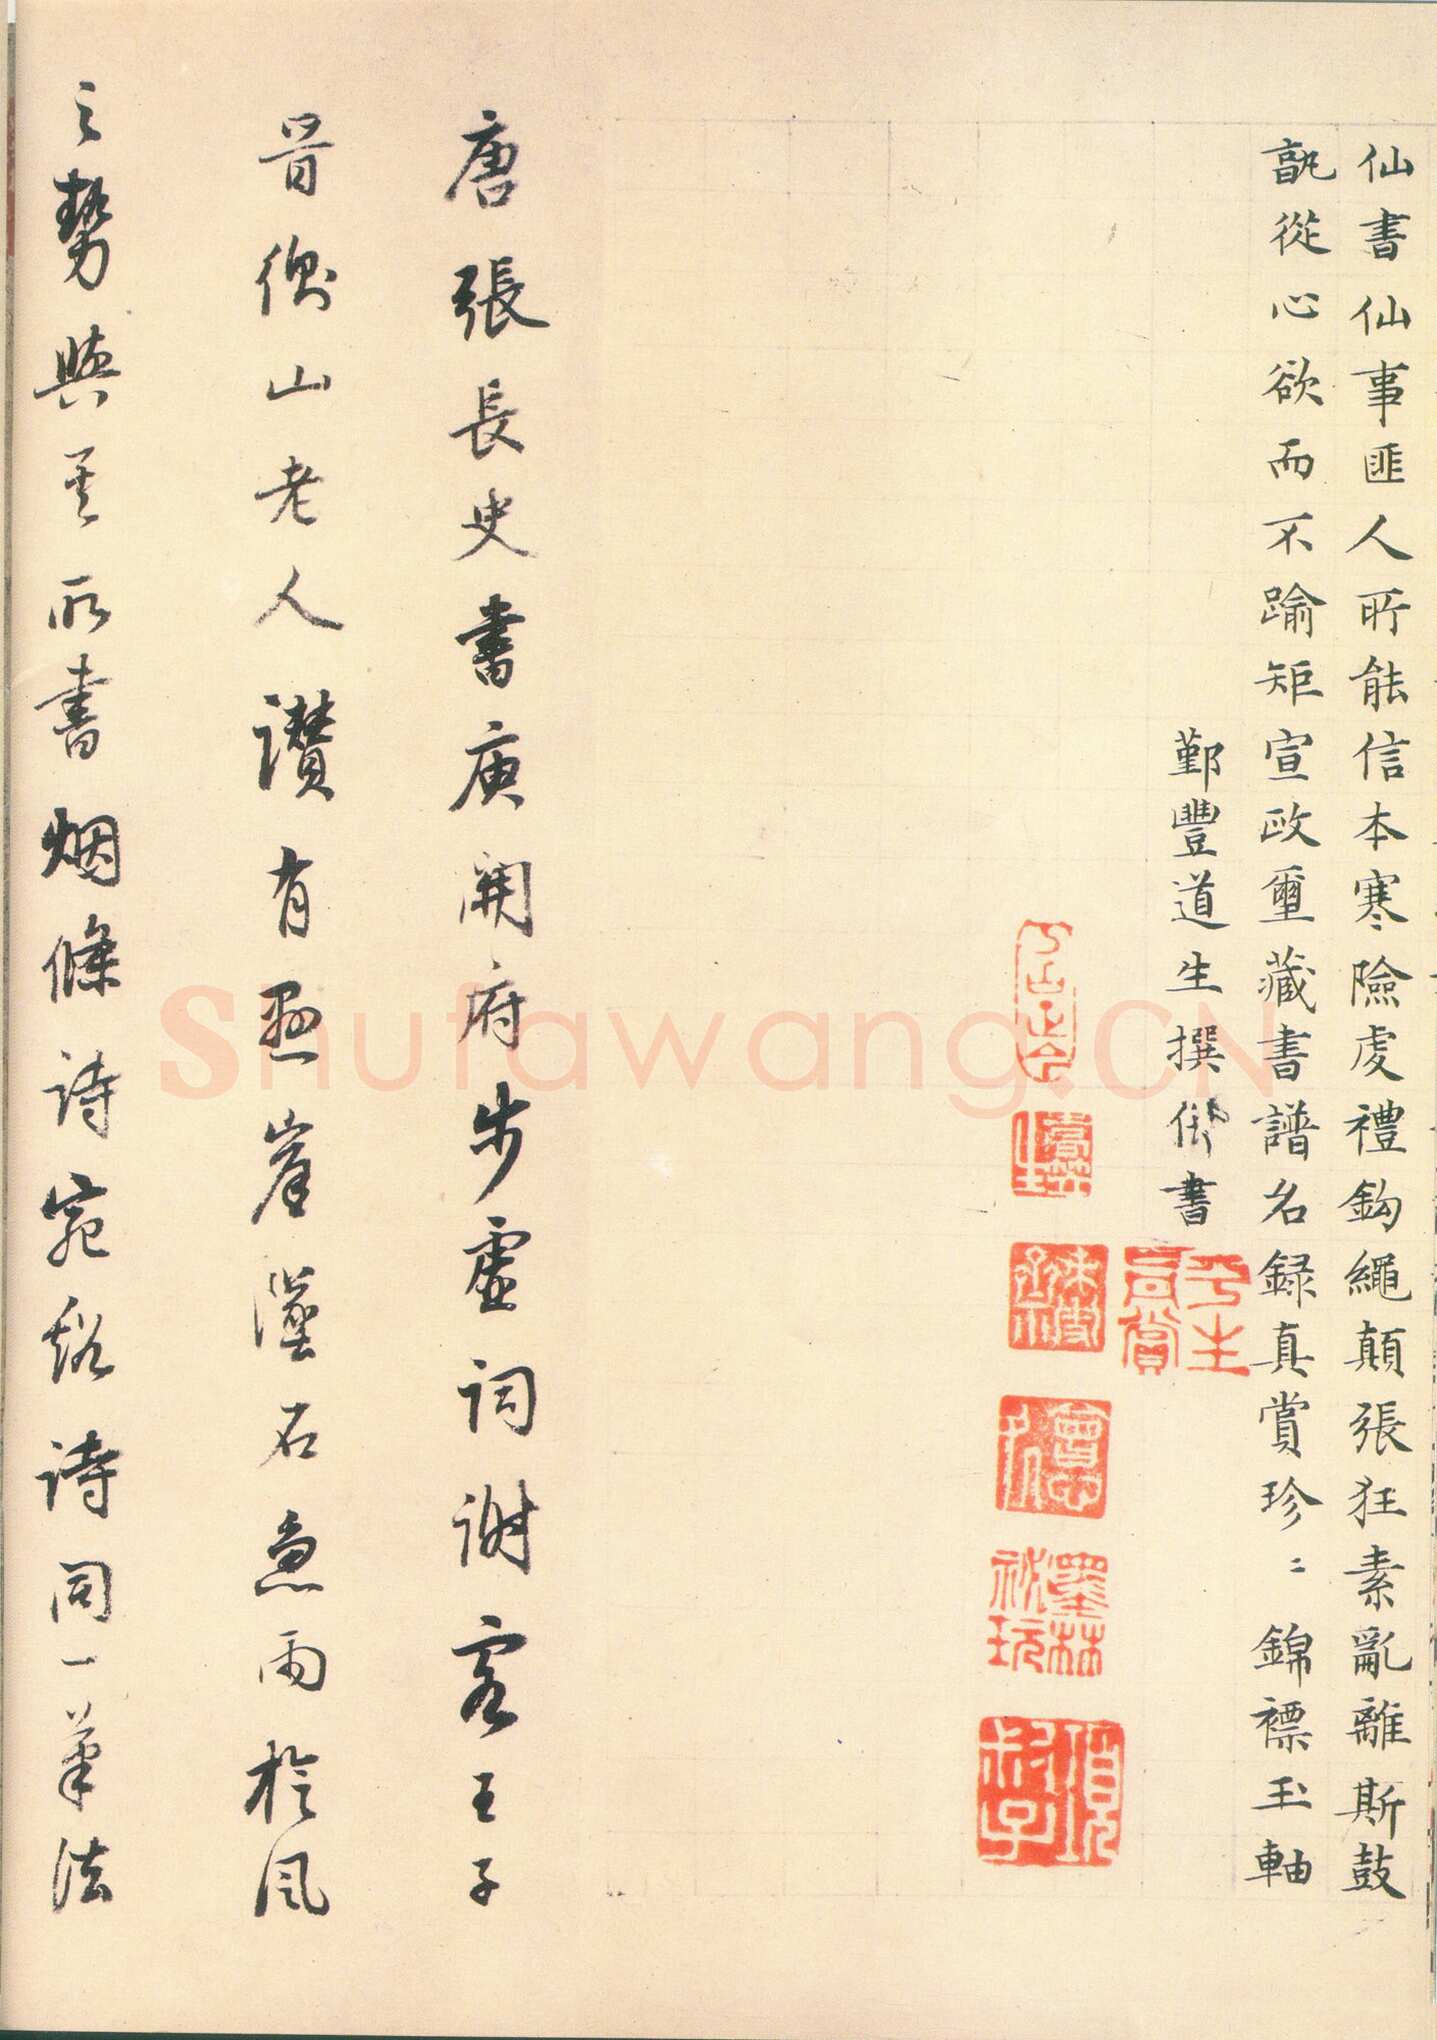 仙書仙事匪人所能信本寒險虔禮鈎繩顛張狂素亂離斯鼓
孰從心欲而不踰矩宣政璽藏書譜名録真賞珍〻錦褾玉軸
鄞豐道生撰併書
平生真賞
墨林祕玩
項叔子
唐張長史書庾開府步虛詞謝客王子
晉衡山老人讚有懸崖墜石急雨旋風
之勢與其所書烟條詩宛谿詩同一筆法
Shufawang.CN